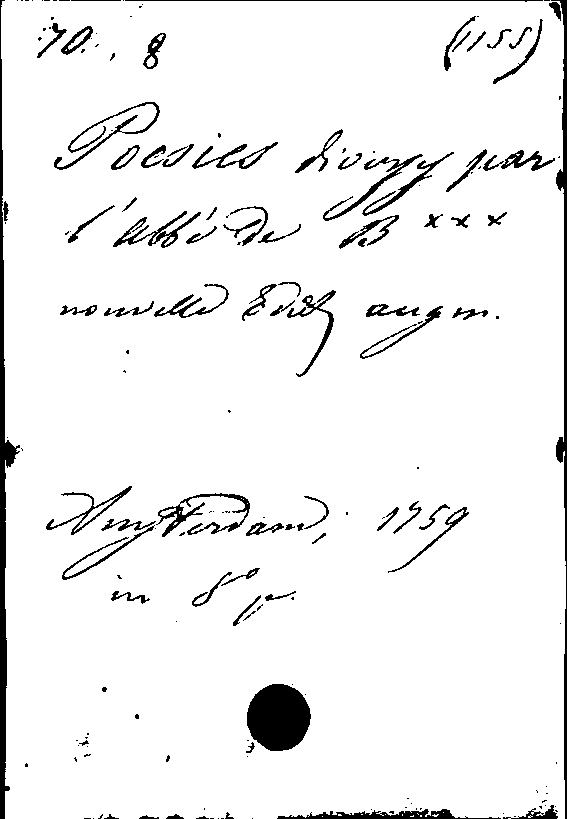 70., 8 (1155)
Poesies diverses par
l'abbé de B xxx
nouvelle Edit augm.
Amsterdam, 1759
in 8° p.